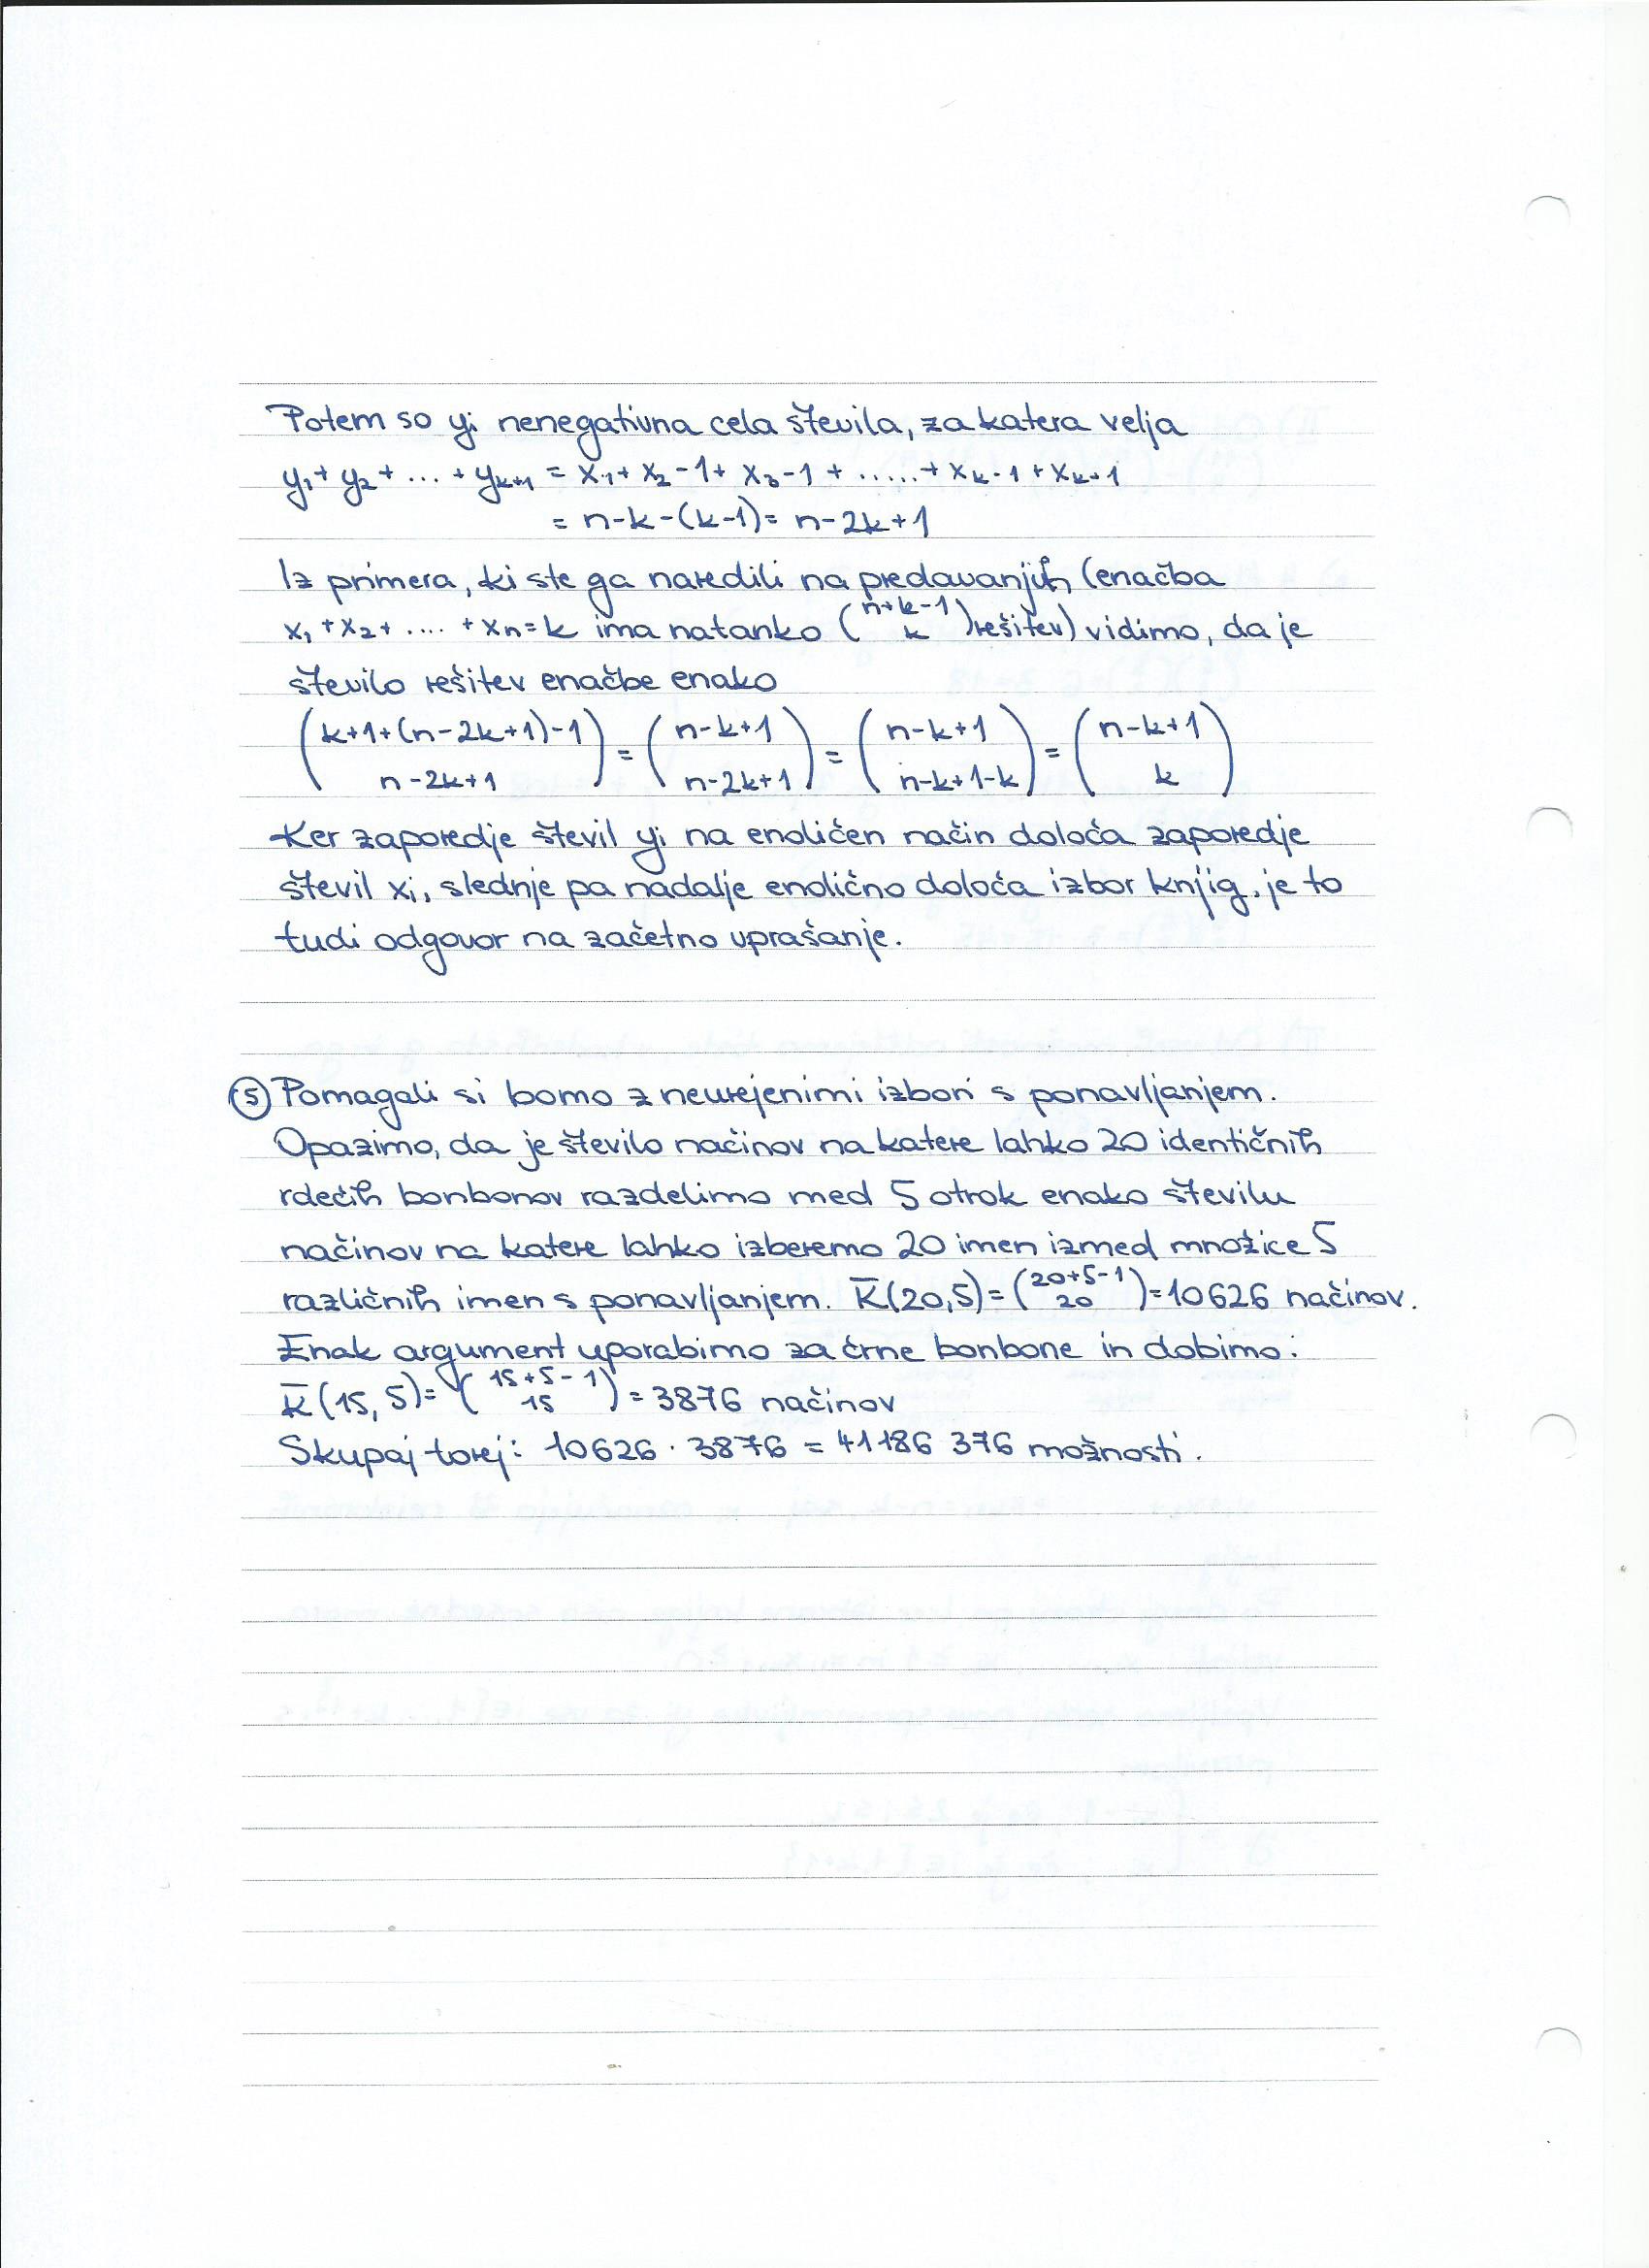 Potem so yi nenegativna cela števila, za katera velja
y₁ + y₂ + ... + yₖ₊₁ = x₁ + x₂ - 1 + x₃ - 1 + ..... + xₖ - 1 + xₖ₊₁
= n-k-(k-1) = n-2k+1
Iz primera, ki ste ga naredili na predavanjih (enačba
x₁ + x₂ + .... + xₙ = k ima natanko (n+k-1 k) rešitev) vidimo, da je
število rešitev enačbe enako
(k+1+(n-2k+1)-1 n-2k+1) = (n-k+1 n-2k+1) = (n-k+1 n-k+1-k) = (n-k+1 k)
Ker zaporedje števil yi na enoličen način določa zaporedje
števil xi, slednje pa nadalje enolično določa izbor knjig, je to
tudi odgovor na začetno vprašanje.
⑤ Pomagali si bomo z neurejenimi izbori s ponavljanjem.
Opazimo, da je število načinov na katere lahko 20 identičnih
rdečih bonbonov razdelimo med 5 otrok enako številu
načinov na katere lahko izberemo 20 imen izmed množice 5
različnih imen s ponavljanjem. K̅(20,5) = (20+5-1 20) = 10626 načinov.
Enak argument uporabimo za črne bonbone in dobimo:
K̅(15, 5) = (15+5-1 15) = 3876 načinov
Skupaj torej: 10626 · 3876 = 41186 376 možnosti.